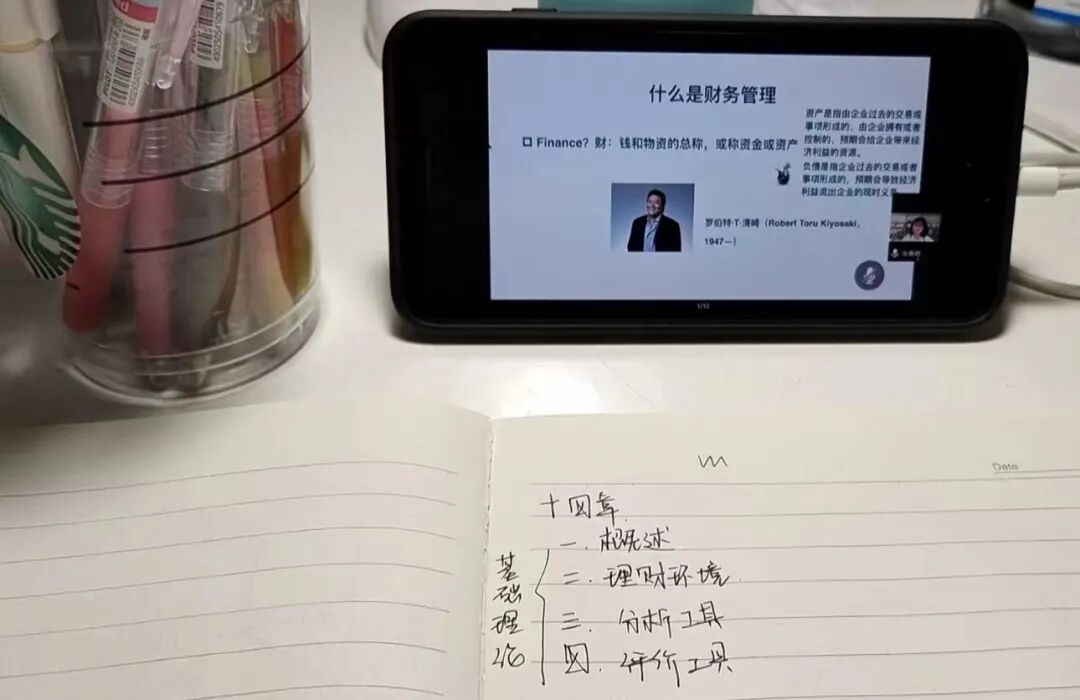 什么是财务管理
Finance？财：钱和物资的总称，或称资金或资产
资产是指由企业过去的交易或
事项形成的、由企业拥有或者
控制的、预期会给企业带来经
济利益的资源。
负债是指企业过去的交易或者
事项形成的，预期会导致经济
利益流出企业的现时义务
罗伯特·T·清崎（Robert Toru Kiyosaki，
1947—）
1/12
PILOT
Date
十四章
一. 概述
二. 理财环境
三. 分析工具
四. 评价工具
基础理论